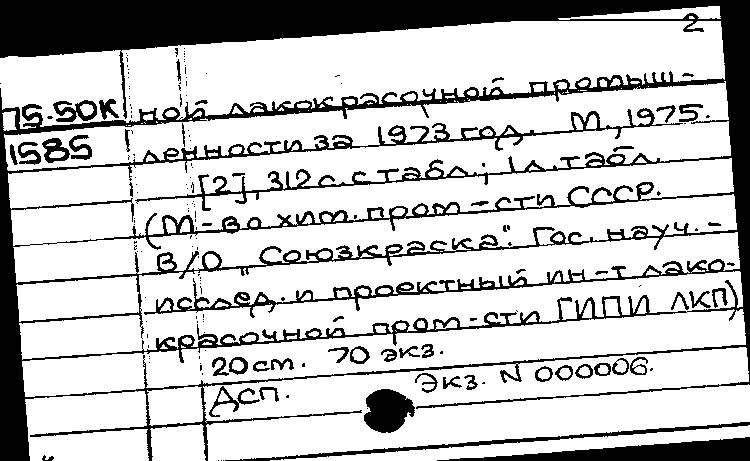 2
75.50К ной лакокрасочной промыш-
1585 ленности за 1973 год. М., 1975.
[2], 312 с. с табл.; 1 л. табл.
(М-во хим. пром-сти СССР.
В/О „Союзкраска". Гос. науч.-
исслед. и проектный ин-т лако-
красочной пром-сти ГИПИ ЛКП)
20 см. 70 экз.
Дсп. Экз. N 000006.